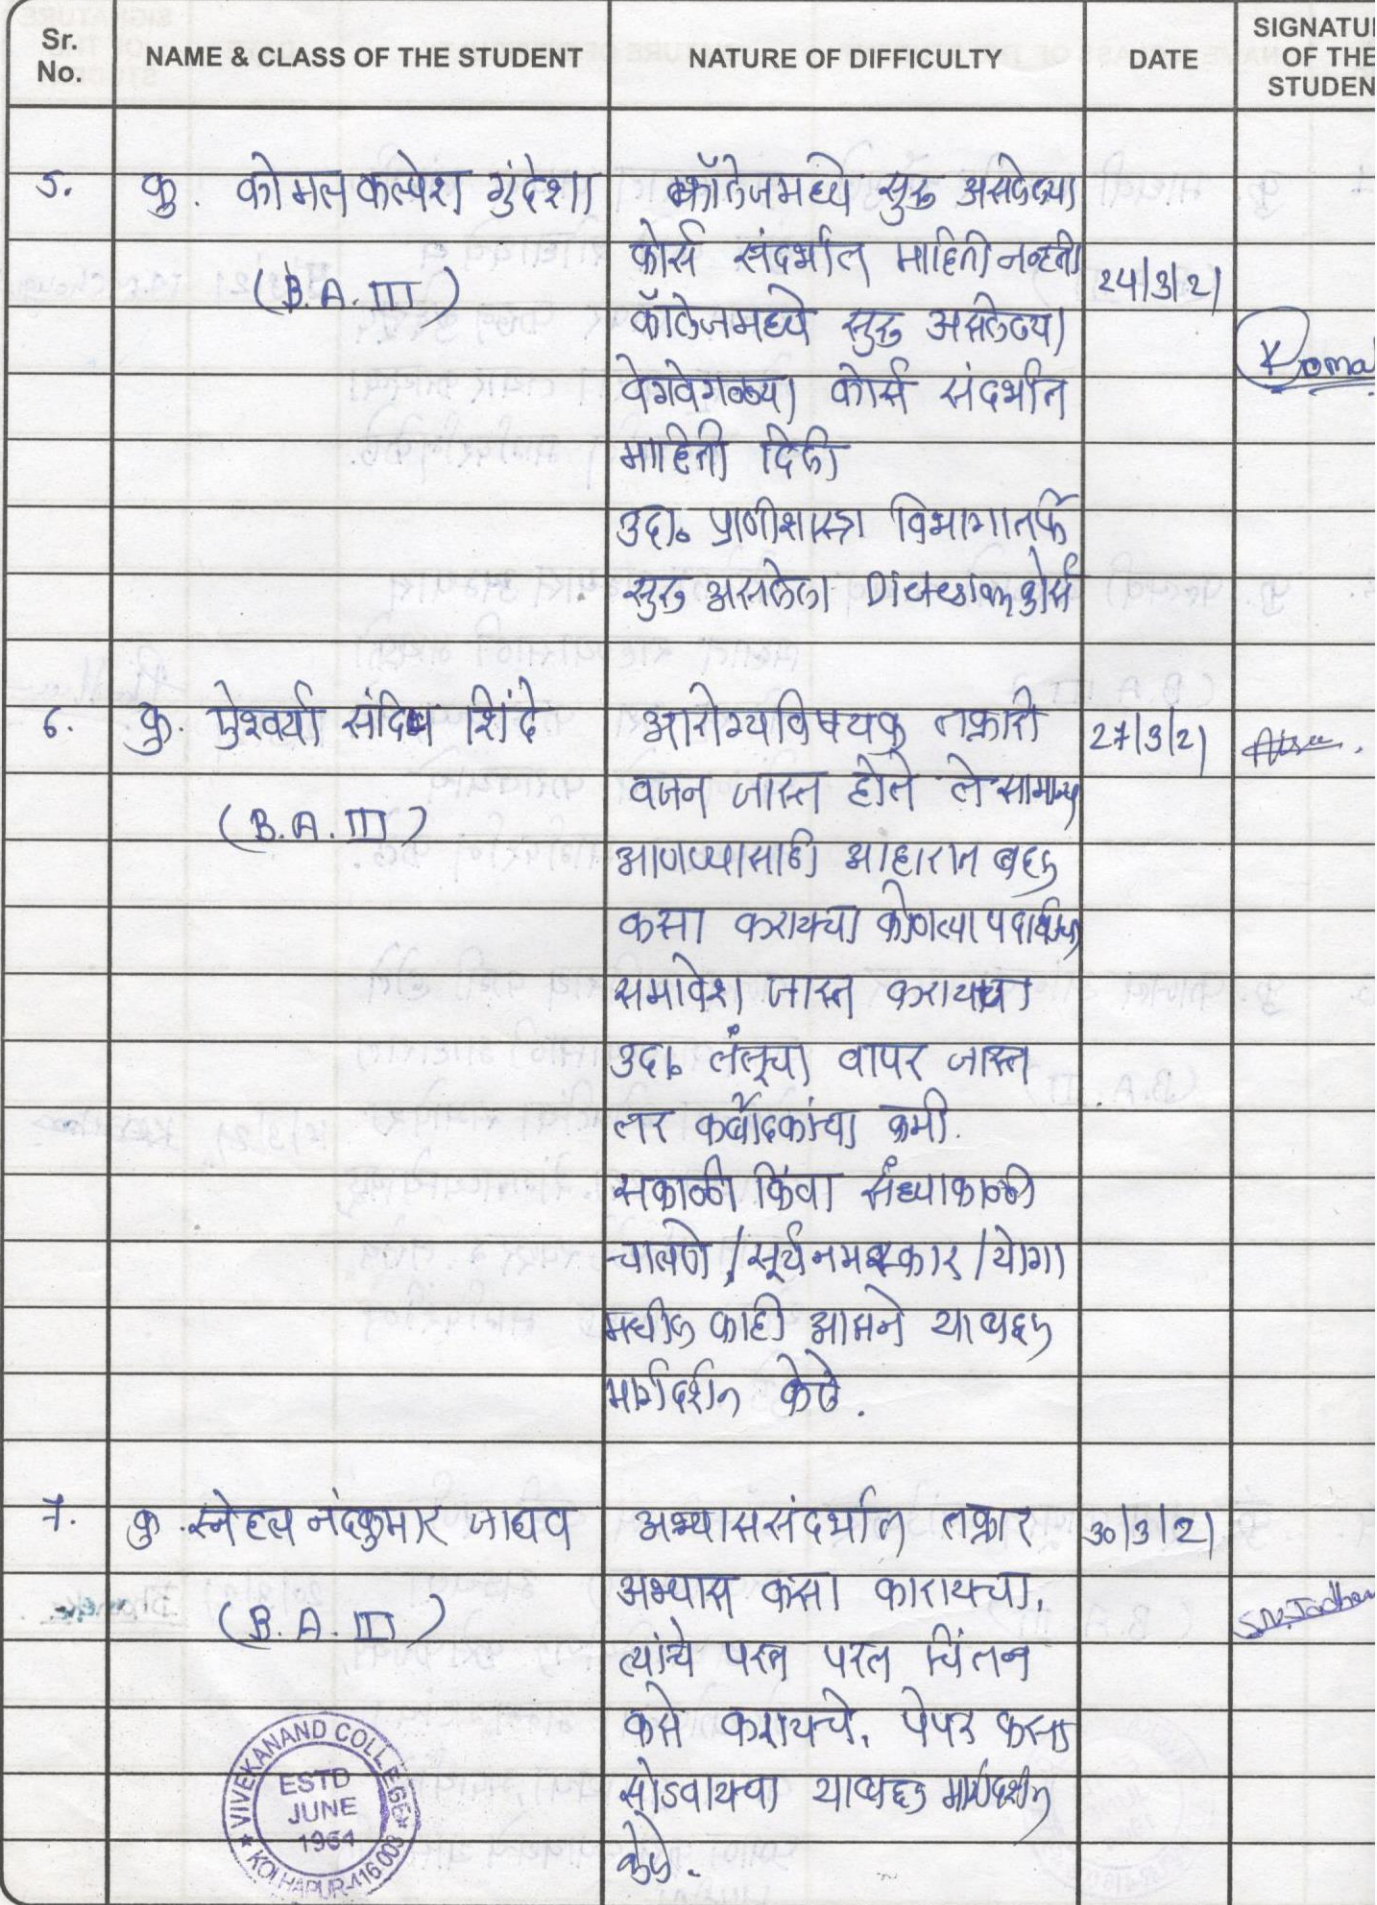 Sr. No. NAME & CLASS OF THE STUDENT NATURE OF DIFFICULTY DATE SIGNATU OF THE STUDEN
5. कु. कोमल कल्पेश गुंदेशा कॉलेजमध्ये सुरु असलेल्या
कोर्स संदर्भात माहिती नव्हती
(B.A.III) 24/3/21
कॉलेजमध्ये सुरु असलेल्या
Komal
वेगवेगळ्या कोर्स संदर्भात
माहिती दिली
उदा. प्राणीशास्त्र विभागातर्फे
सुरु असलेला कोर्स
6. कु. ऐश्वर्या संदिप शिंदे आरोग्यविषयक तक्रारी 27/3/21
वजन जास्त होते ते सामान्य
(B.A.III)
आणण्यासाठी आहारात बदल
कसा करायचा कोणत्या पदार्थांचा
समावेश जास्त करायचा
उदा. तंतूचा वापर जास्त
तर कर्बोदकांचा कमी.
सकाळी किंवा संध्याकाळी
चालणे / सूर्यनमस्कार / योगा
मधील काही आसने याबद्दल
मार्गदर्शन केले.
7. कु. स्नेहल नंदकुमार जाधव अभ्याससंदर्भात तक्रार 30/3/21
अभ्यास कसा कारायचा,
(B.A.III) S.N.Jadhav
त्यांचे परत परत चिंतन
कसे करायचे, पेपर कसा
सोडवायचा याबद्दल मार्गदर्शन
केले.
VIVEKANAND COLLEGE
ESTD
JUNE
1964
KOLHAPUR-416003